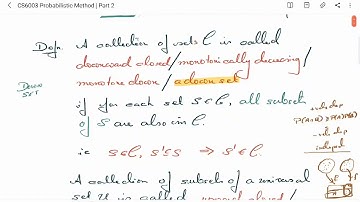 CS6003 Probabilistic Method | Part 2
Defn. A collection of sets C is called
downward closed / monotonically decreasing /
monotone down / a down set
DOWN
SET
if for each set S∈C, all subsets
of S are also in C.
ie S∈C, S'⊆S ⇒ S'∈C.
A collection of subsets of a universal
set U is called upward closed /